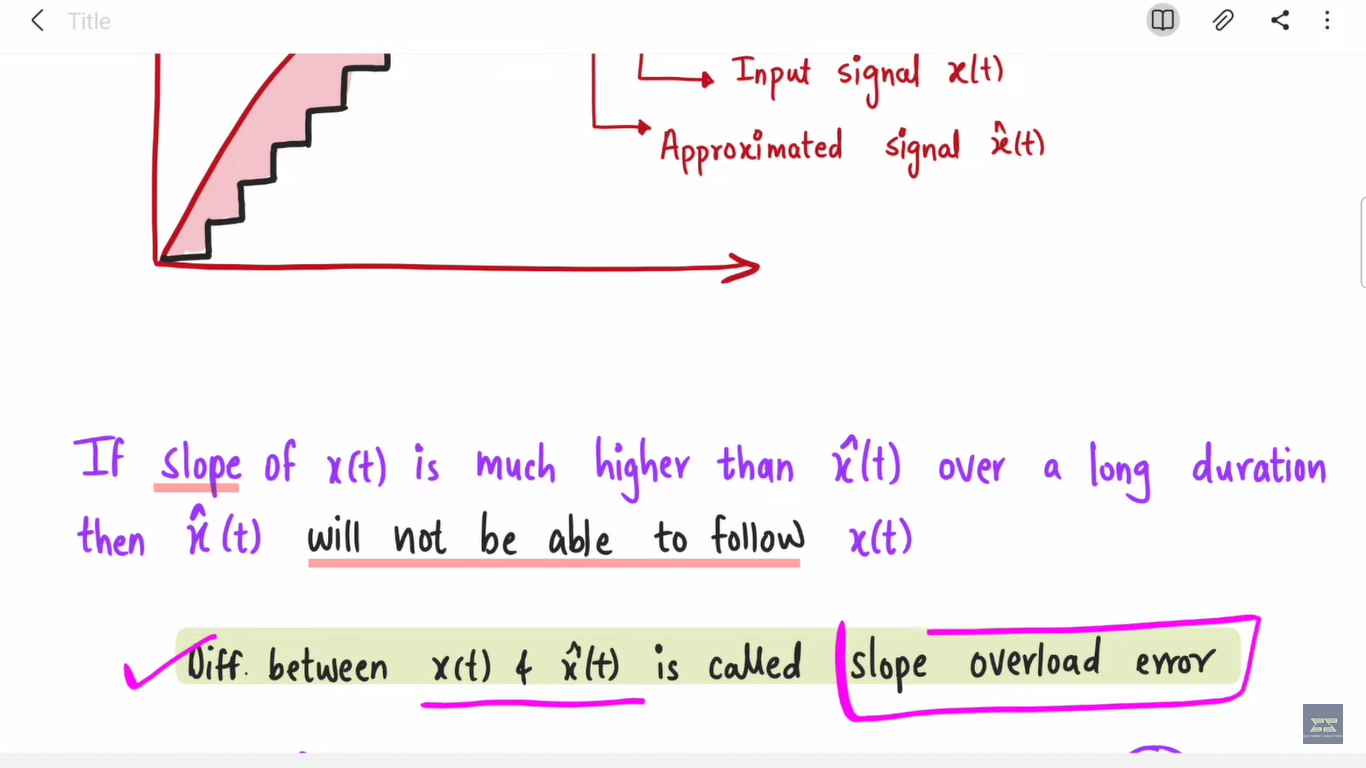 Title
Input signal x(t)
Approximated signal x̂(t)
If slope of x(t) is much higher than x̂(t) over a long duration
then x̂(t) will not be able to follow x(t)
Diff. between x(t) & x̂(t) is called slope overload error